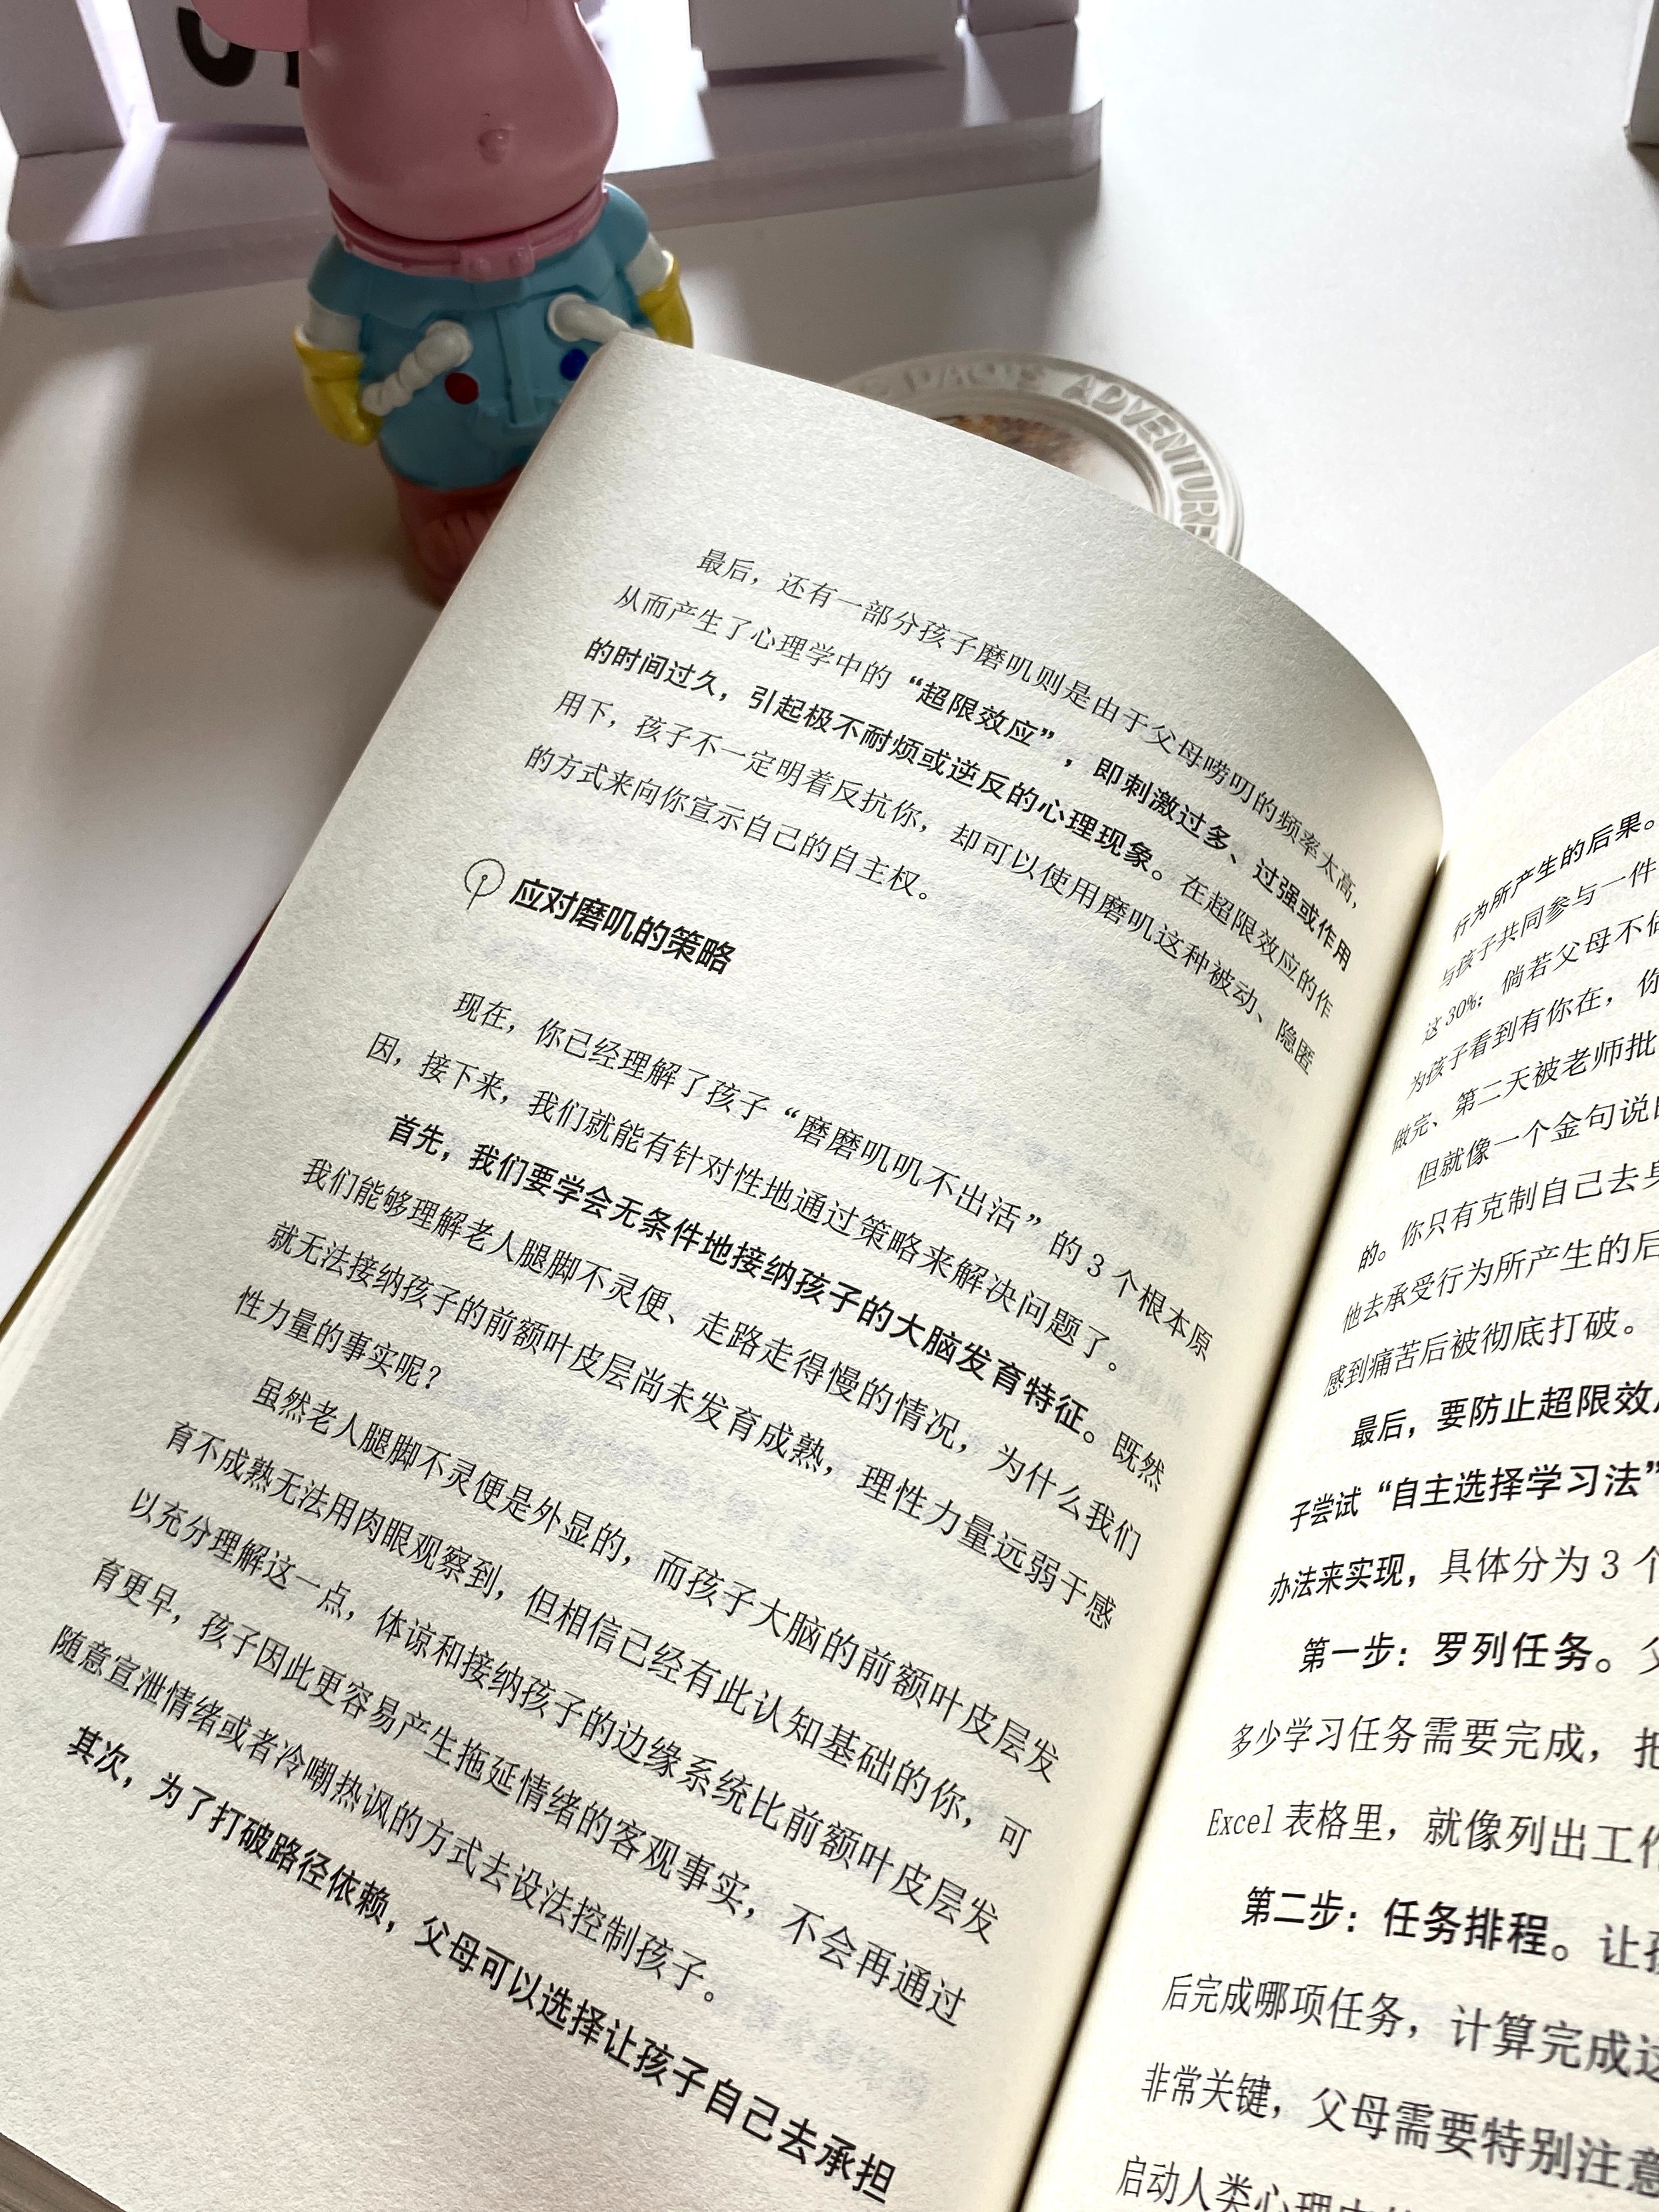 DAO'S ADVENTURE
最后，还有一部分孩子磨叽则是由于父母唠叨的频率太高，
从而产生了心理学中的“超限效应”，即刺激过多、过强或作用
的时间过久，引起极不耐烦或逆反的心理现象。在超限效应的作
用下，孩子不一定明着反抗你，却可以使用磨叽这种被动、隐匿
的方式来向你宣示自己的自主权。
应对磨叽的策略
现在，你已经理解了孩子“磨磨叽叽不出活”的3个根本原
因，接下来，我们就能有针对性地通过策略来解决问题了。
首先，我们要学会无条件地接纳孩子的大脑发育特征。既然
我们能够理解老人腿脚不灵便、走路走得慢的情况，为什么我们
就无法接纳孩子的前额叶皮层尚未发育成熟，理性力量远弱于感
性力量的事实呢？
虽然老人腿脚不灵便是外显的，而孩子大脑的前额叶皮层发
育不成熟无法用肉眼观察到，但相信已经有此认知基础的你，可
以充分理解这一点，体谅和接纳孩子的边缘系统比前额叶皮层发
育更早，孩子因此更容易产生拖延情绪的客观事实，不会再通过
随意宣泄情绪或者冷嘲热讽的方式去设法控制孩子。
其次，为了打破路径依赖，父母可以选择让孩子自己去承担
行为所产生的后果。
与孩子共同参与一件
这30%；倘若父母不
为孩子看到有你在，你
做完、第二天被老师批
但就像一个金句说
的。你只有克制自己去
他去承受行为所产生的后
感到痛苦后被彻底打破。
最后，要防止超限效
子尝试“自主选择学习法”
办法来实现，具体分为3个
第一步：罗列任务。父
多少学习任务需要完成，把
Excel表格里，就像列出工作
第二步：任务排程。让孩
后完成哪项任务，计算完成这
非常关键，父母需要特别注意
启动人类心理